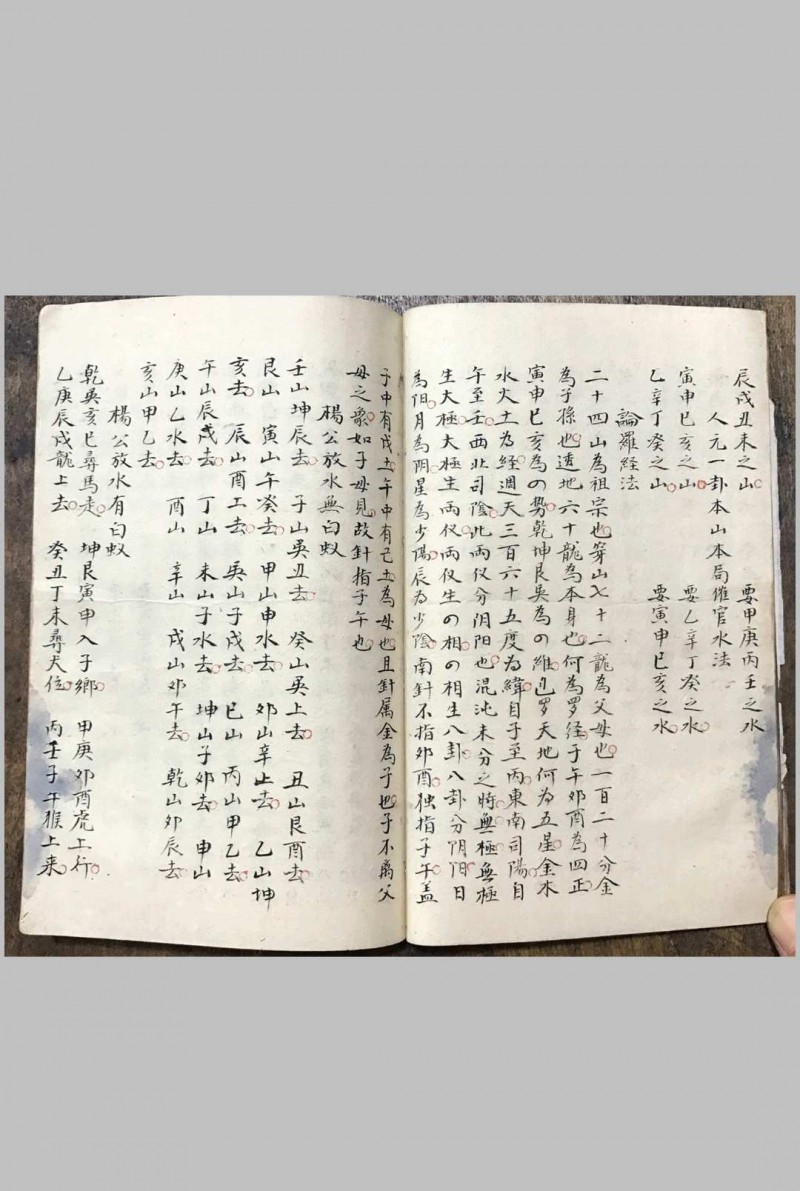 辰戌丑未之山　要甲庚丙壬之水
人元一卦本山本局催官水法
寅申巳亥之山　要乙辛丁癸之水
乙辛丁癸之山　要寅申巳亥之水
論羅経法
二十四山為祖宗也穿山七十二龍為父母也一百二十分金
為子孫也透地六十龍為本身也何為罗経子午卯酉為四正
寅申巳亥為の势乾坤艮巽為の維包罗天地何為五星金木
水火土為経週天三百六十五度為緯自子至丙東南司陽自
午至壬西北司陰此両仪分阴阳也混沌未分之時無極無極
生太極太極生両仪両仪生の相の相生八卦八卦分阴阳日
為阳月為阴星為少陽辰為少陰南針不指卯酉独指子午盖
子中有戊土午中有己土為母也且針属金為子也子不离父
母之家如子母見故針指子午也
楊公放水無白蚁
壬山坤辰去　子山巽丑去　癸山巽上去　丑山艮酉去
艮山　寅山午癸去　甲山申水去　卯山辛上去　乙山坤
亥去　辰山酉工去　巽山子戌去　巳山　丙山甲乙去
午山辰戌去　丁山　未山子水去　坤山子卯去　申山
庚山乙水去　酉山　辛山　戌山卯午去　乾山卯辰去
亥山甲乙去
楊公放水有白蚁
乾巽亥巳尋馬走　坤艮寅申入子鄉　甲庚卯酉虎上行
乙庚辰戌龍上去　癸丑丁未尋犬位　丙壬子午猴上来